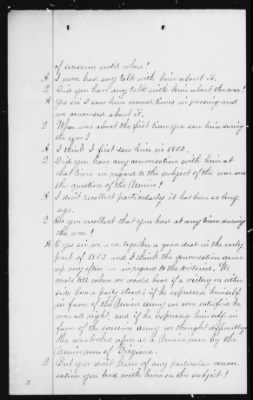 of secession until when?
A I never had any talk with him about it.
Q Did you have any talk with him about the war?
A Yes sir I saw him several times in passing and
we conversed about it.
Q When was about the first time you saw him during
the war?
A I think I first saw him in 1862.
Q Did you have any conversation with him at
that time in regard to the subject of the war and
the question of the Union?
A I don't recollect particularly it has been so long
ago.
Q Do you recollect that you had at any time during
the war?
A O yes sir we were together a good deal in the early
part of 1862 and I think the conversation came
up very often in regard to the
could tell when we would hear of a victory on either
side how a party stood; if he expressed himself
in favor of the Union army we were satisfied he
was all right, and if he expressed himself in
favor of the secession army we thought differently
He was looked upon as a Union man by the
Union men of Virginia.
Q But you don't know of any particular conver-
sation you had with him on the subject?